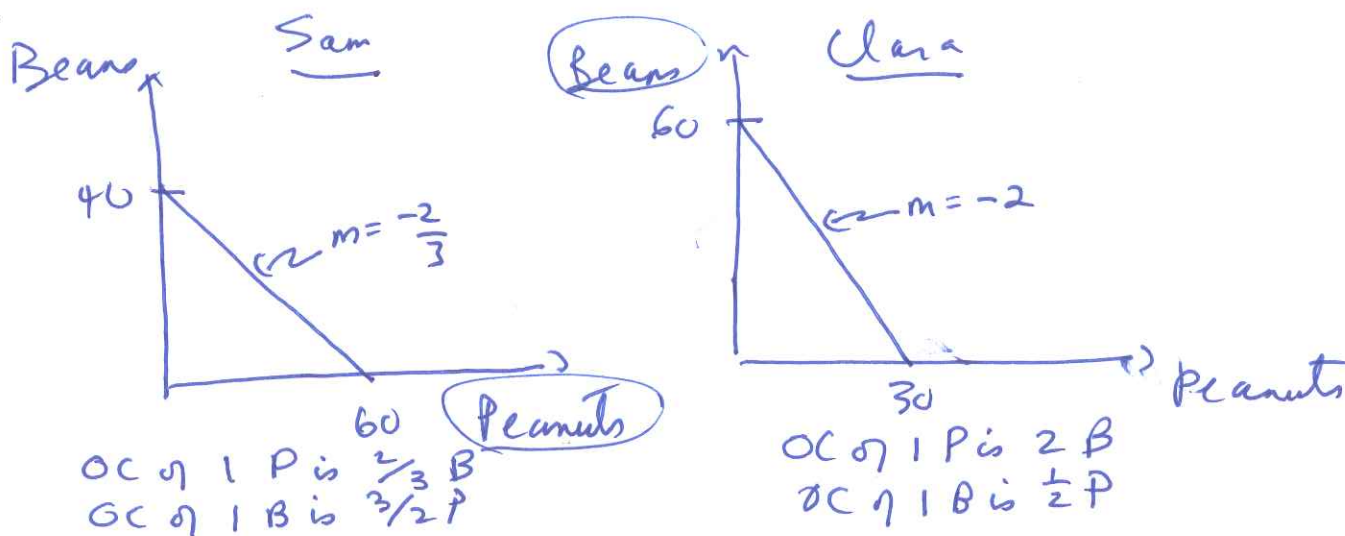 Sam
Beans
40
m = -2/3
60
Peanuts
OC of 1 P is 2/3 B
OC of 1 B is 3/2 P
Clara
Beans
60
m = -2
30
Peanuts
OC of 1 P is 2 B
OC of 1 B is 1/2 P